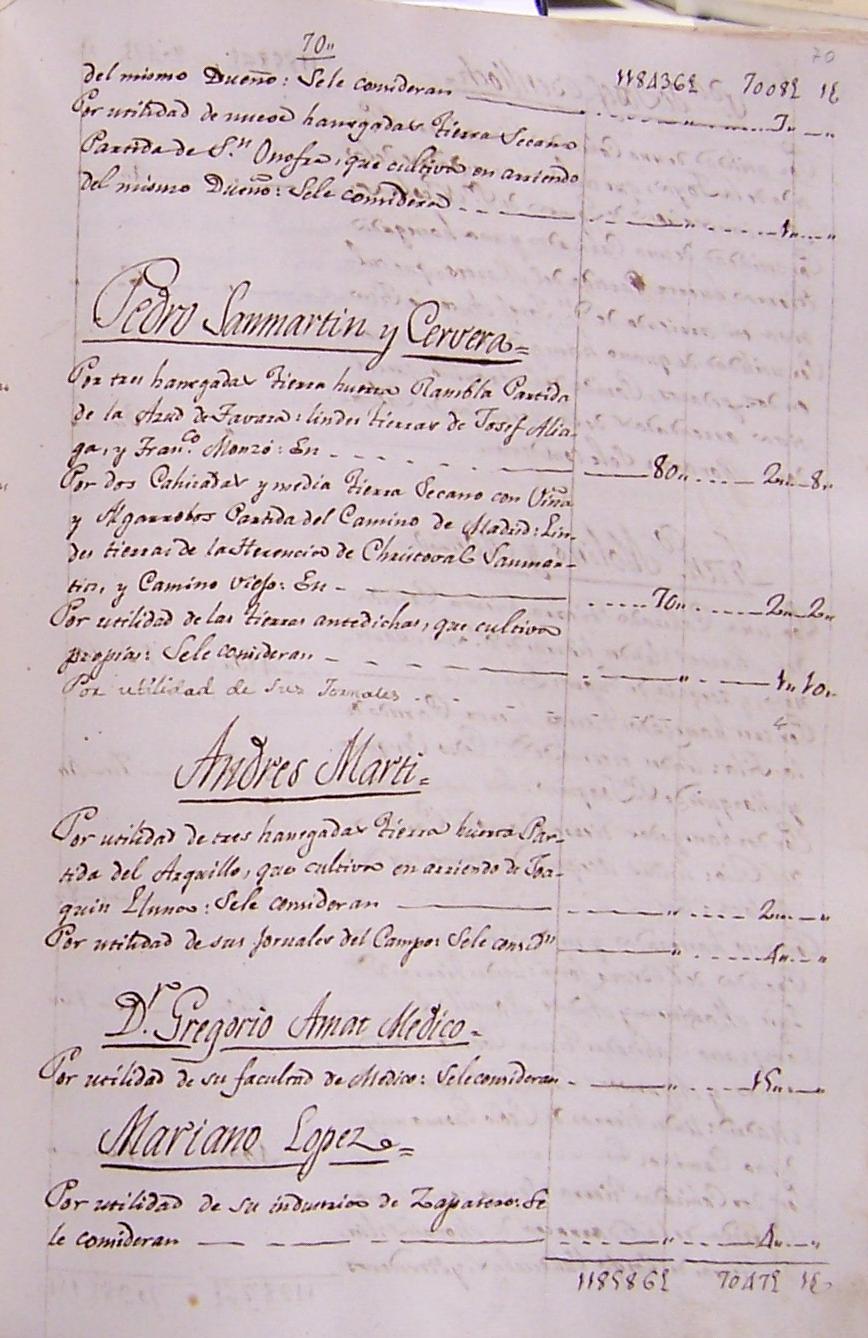 70„
70
del mismo Dueño: Sele consideran 118436£ 7008£ 1£
7„ „
Por utilidad de nueve hanegadas tierra Secano
Partida de S.n Onofre, que cultiva en arriendo
del mismo Dueño: Sele considera „ 1„ „
Pedro Sanmartin y Cervera=
Por tres hanegadas tierra huerta Rambla Partida
de la Azud de Favara: lindes tierras de Josef Alia-
ga, y Fran.co Monzó: En 80„ 2„ 8„
Por dos Cahizadas y media tierra Secano con Viña
y Algarrobos Partida del Camino de Madrid: Lin-
des tierras de la Herencia de Christoval Sanmar-
tin, y Camino viejo: En 70„ 2„ 2„
Por utilidad de las tierras antedichas, que cultiva
propias: Sele consideran „ 1„ 10„
Por utilidad de sus Jornales 4
Andres Marti=
Por utilidad de tres hanegadas tierra huerta Par-
tida del Arquillo, que cultiva en arriendo de Joa-
quin Lluna: Sele consideran „ 2„ „
Por utilidad de sus Jornales del Campo: Sele consid.n „ 4„ „
D.r Gregorio Amat Medico=
Por utilidad de su facultad de Medico: Sele consideran „ 15„ „
Mariano Lopez=
Por utilidad de su industria de Zapatero: Se
le consideran „ 4„ „
118586£ 7047£ 1£